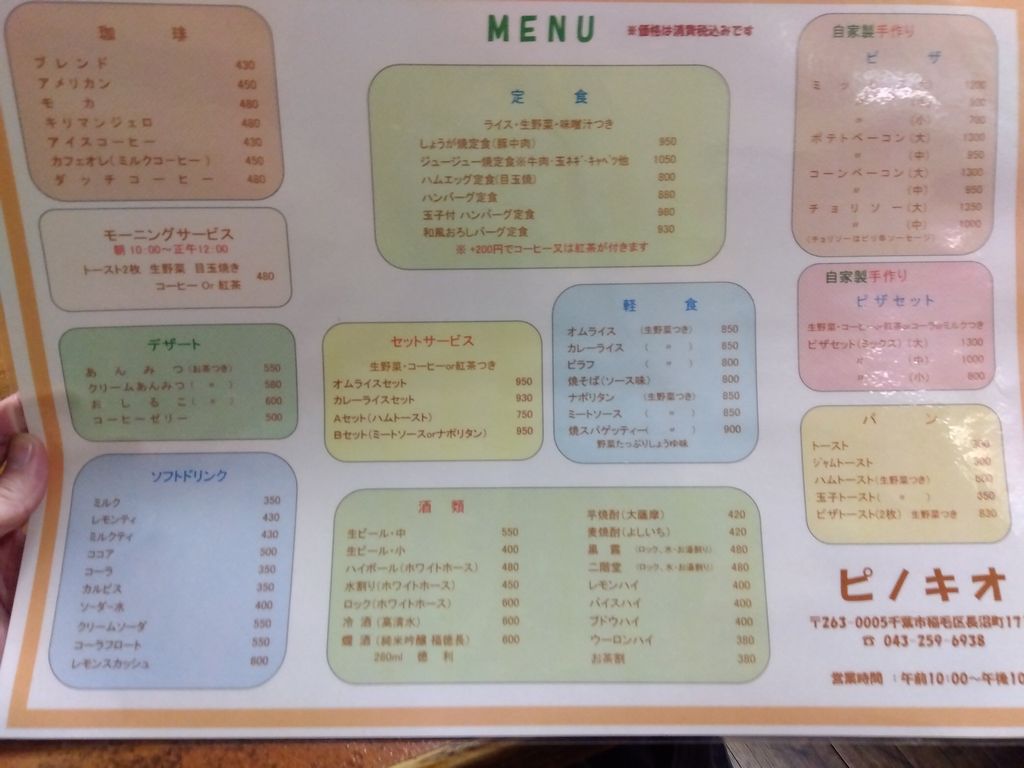 MENU ※価格は消費税込みです
珈琲
ブレンド 430
アメリカン 450
モカ 480
キリマンジェロ 480
アイスコーヒー 430
カフェオレ(ミルクコーヒー) 450
ダッチコーヒー 480
モーニングサービス
朝 10:00~正午12:00
トースト2枚 生野菜 目玉焼き
コーヒー Or 紅茶 480
デザート
あんみつ(お茶つき) 550
クリームあんみつ( 〃 ) 580
おしるこ( 〃 ) 600
コーヒーゼリー 500
ソフトドリンク
ミルク 350
レモンティ 430
ミルクティ 430
ココア 500
コーラ 350
カルピス 350
ソーダー水 400
クリームソーダ 550
コーラフロート 550
レモンスカッシュ 600
定食
ライス・生野菜・味噌汁つき
しょうが焼定食(豚中肉) 950
ジュージュー焼定食※牛肉・玉ネギ・キャベツ他 1050
ハムエッグ定食(目玉焼) 800
ハンバーグ定食 880
玉子付 ハンバーグ定食 980
和風おろしバーグ定食 930
※ +200円でコーヒー又は紅茶が付きます
セットサービス
生野菜・コーヒーor紅茶つき
オムライスセット 950
カレーライスセット 930
Aセット(ハムトースト) 750
Bセット(ミートソースorナポリタン) 950
軽食
オムライス (生野菜つき) 850
カレーライス ( 〃 ) 850
ピラフ ( 〃 ) 800
焼そば(ソース味) 800
ナポリタン (生野菜つき) 850
ミートソース ( 〃 ) 850
焼スパゲッティー( 〃 ) 900
野菜たっぷりしょうゆ味
酒類
生ビール・中 550
生ビール・小 400
ハイボール(ホワイトホース) 480
水割り(ホワイトホース) 450
ロック(ホワイトホース) 600
冷酒(高清水) 600
燗酒(純米吟醸 福徳長) 600
280ml 徳利
芋焼酎(大薩摩) 420
麦焼酎(よしいち) 420
黒霧 (ロック、水・お湯割り) 480
二階堂 (ロック、水・お湯割り) 480
レモンハイ 400
バイスハイ 400
ブドウハイ 400
ウーロンハイ 380
お茶割 380
自家製手作り
ピザ
(大) 1200
(小) 700
ポテトベーコン(大) 1300
〃 (中) 950
コーンベーコン(大) 1300
〃 (中) 950
チョリソー(大) 1250
〃 (中) 1000
(チョリソーはピリ辛ソーセージ)
自家製手作り
ピザセット
生野菜・コーヒーor紅茶orコーラorミルクつき
ピザセット(ミックス)(大) 1300
〃 (中) 1000
〃 (小) 800
パン
トースト
ジャムトースト 300
ハムトースト(生野菜つき) 500
玉子トースト( 〃 ) 350
ピザトースト(2枚) 生野菜つき 830
ピノキオ
〒263-0005千葉市稲毛区長沼町17
☎ 043-259-6938
営業時間 :午前10:00~午後10